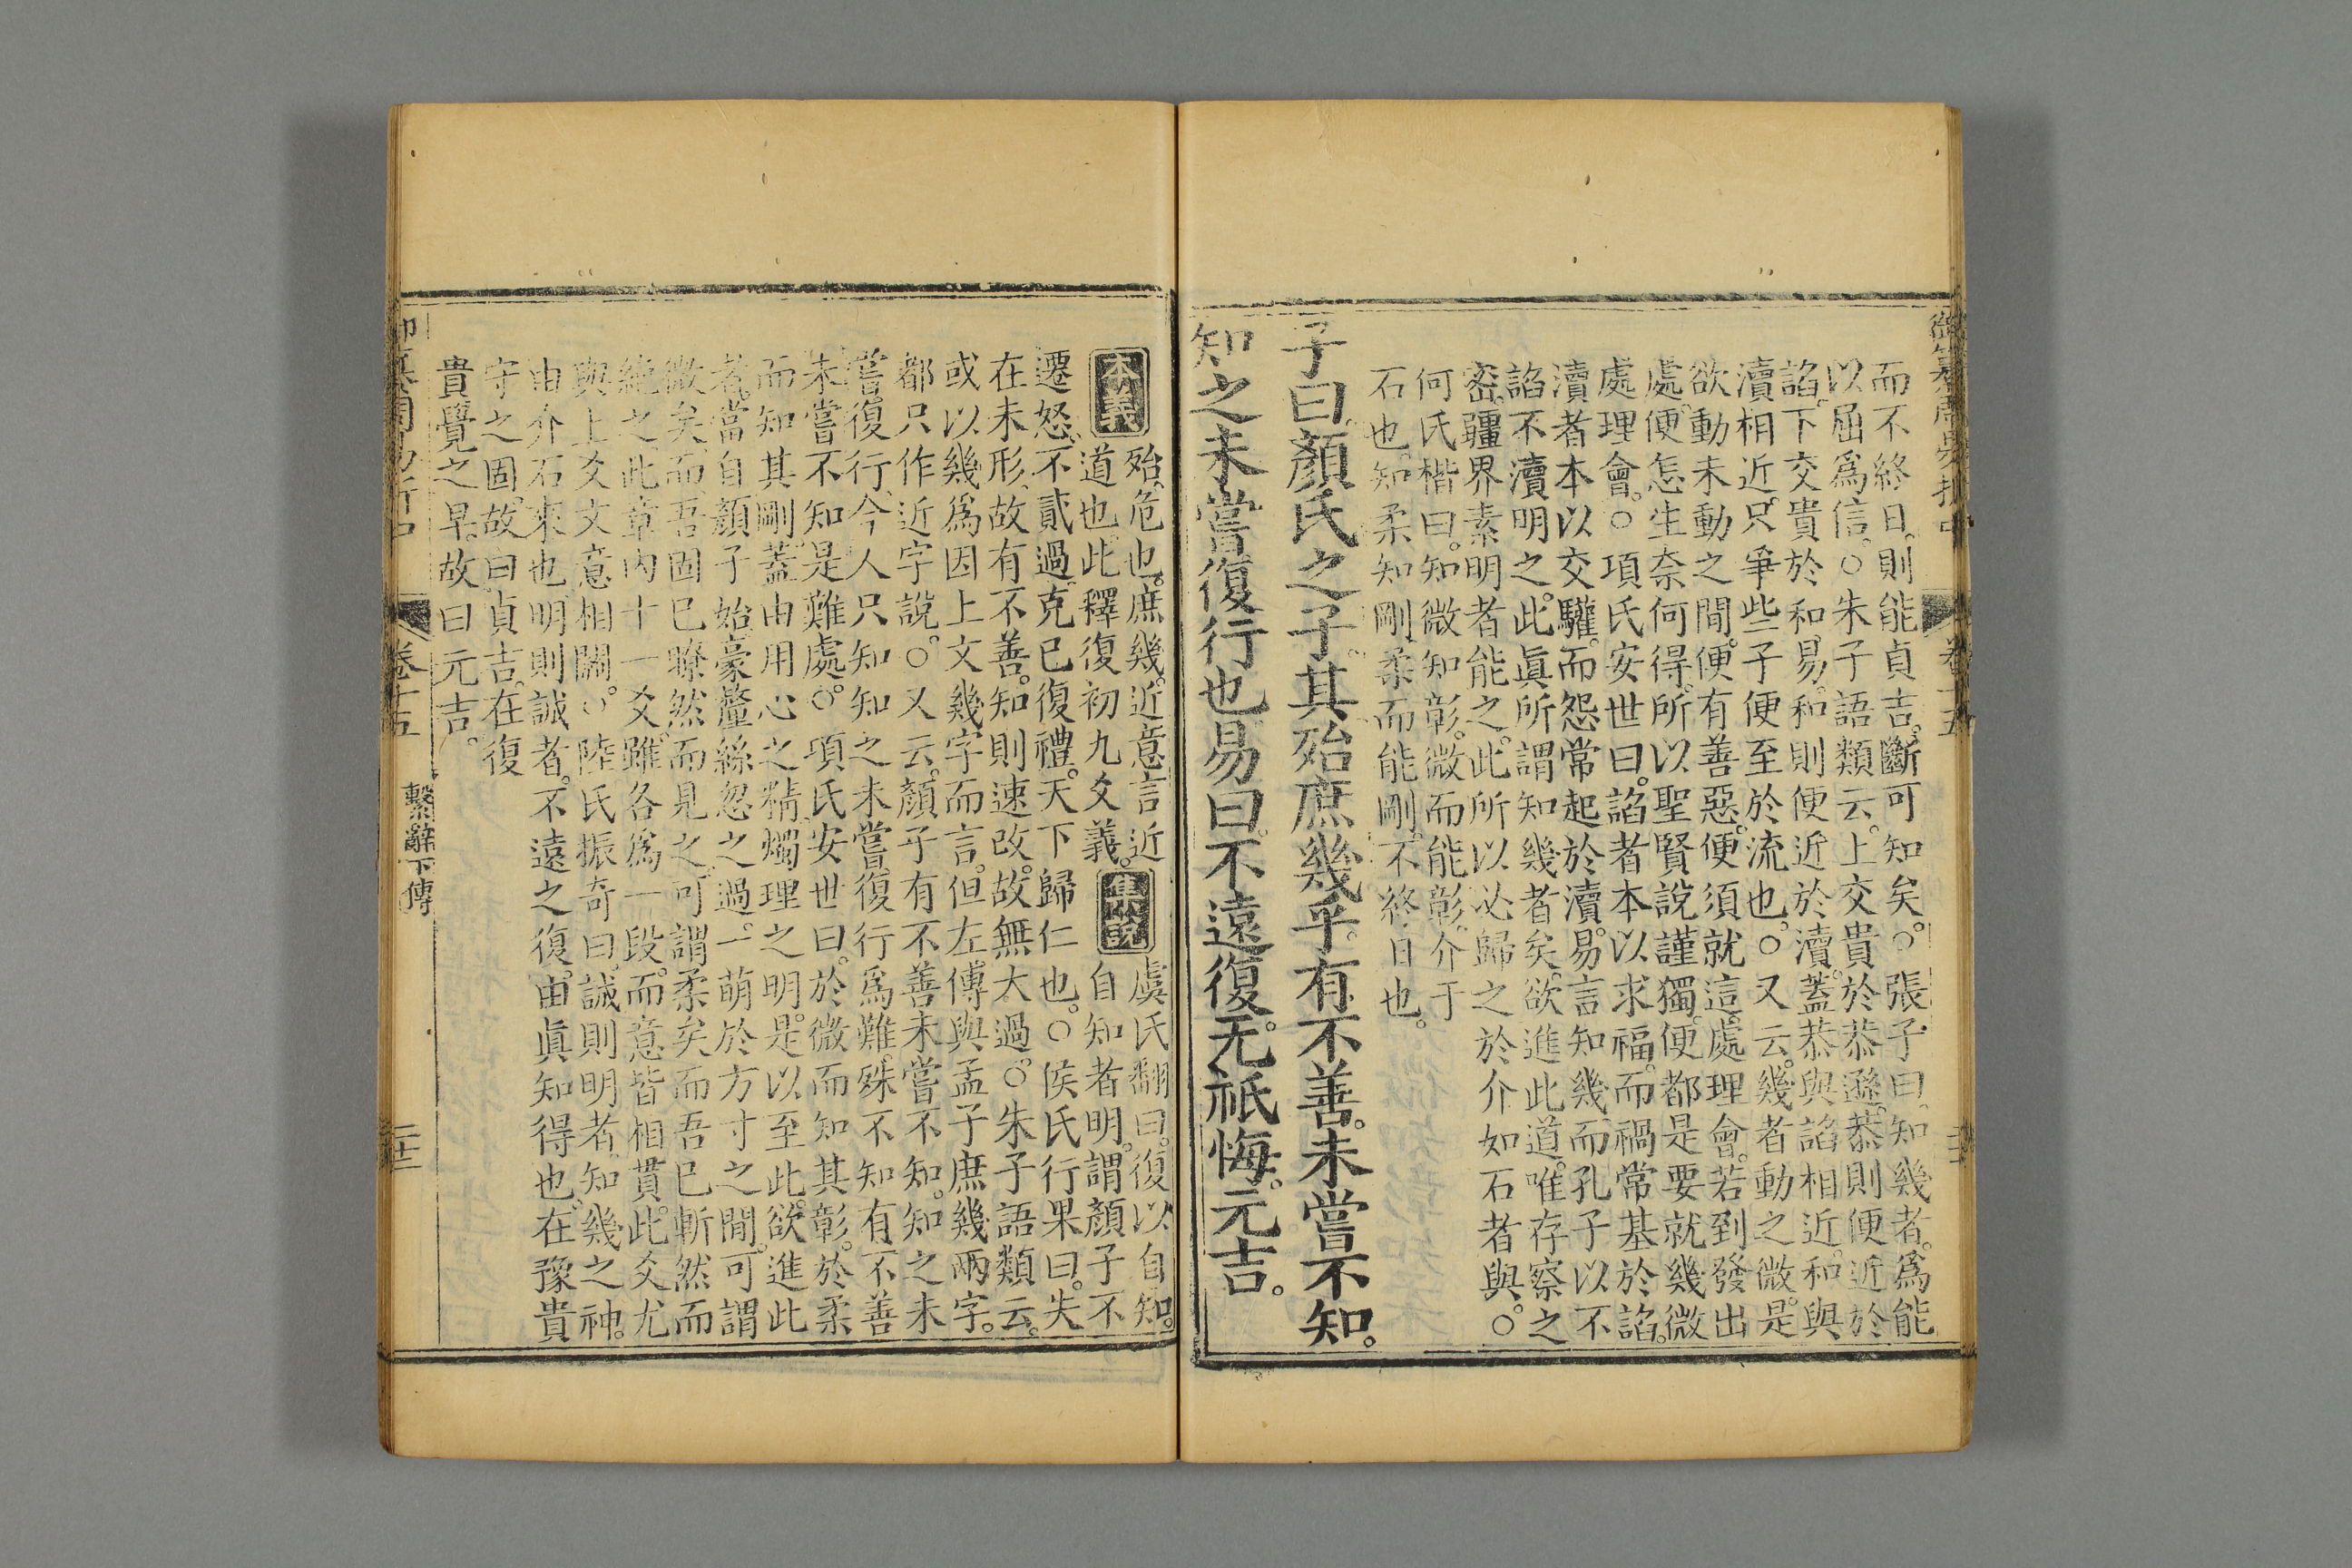 御纂周易折中
卷十五
而不終日。則能貞吉。斷可知矣。○張子曰。知幾者。爲能
以屈爲信。○朱子語類云。上交貴於恭遜。恭則便近於
諂。下交貴於和易。和則便近於瀆。蓋恭與諂相近。和與
瀆相近。只爭些子便至於流也。○又云。幾者動之微。是
欲動未動之間。便有善惡。便須就這處理會。若到發出
處。便怎生奈何得。所以聖賢說謹獨。便都是要就幾微
處理會。○項氏安世曰。諂者本以求福。而禍常基於諂。
瀆者本以交驩。而怨常起於瀆。易言知幾而孔子以不
諂不瀆明之。此眞所謂知幾者矣。欲進此道。唯存察之
密。疆界素明者能之。此所以必歸之於介如石者與。○
何氏楷曰。知微知彰。微而能彰。介于
石也。知柔知剛。柔而能剛。不終日也。
子曰。顏氏之子。其殆庶幾乎。有不善。未嘗不知。
知之未嘗復行也。易曰。不遠復。无祇悔。元吉。
本義 殆。危也。庶幾。近意。言近
道也。此釋復初九爻義。 集說 虞氏翻曰。復以自知。
自知者明。謂顏子不
遷怒。不貳過。克己復禮。天下歸仁也。○侯氏行果曰。失
在未形。故有不善。知則速改。故無大過。○朱子語類云。
或以幾爲因上文幾字而言。但左傳與孟子庶幾兩字。
都只作近字說。○又云。顏子有不善未嘗不知。知之未
嘗復行。今人只知知之未嘗復行爲難。殊不知有不善
未嘗不知是難處。○項氏安世曰。於微而知其彰。於柔
而知其剛。蓋由用心之精。燭理之明。是以至此。欲進此
者。當自顏子始。豪釐絲忽之過。一萌於方寸之間。可謂
微矣。而吾固已瞭然而見之。可謂柔矣。而吾已斬然而
絕之。此章內十一爻。雖各爲一段。而意皆相貫。此爻尤
與上爻文意相關。○陸氏振奇曰。誠則明者。知幾之神。
由介石來也。明則誠者。不遠之復。由眞知得也。在豫貴
守之固。故曰貞吉。在復
貴覺之早。故曰元吉。
卷十五
繫辭下傳